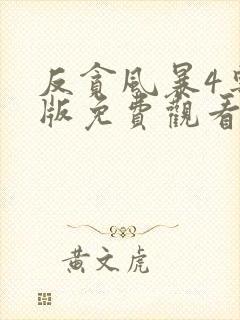 反貪風暴4
版免費觀看
黃文虎